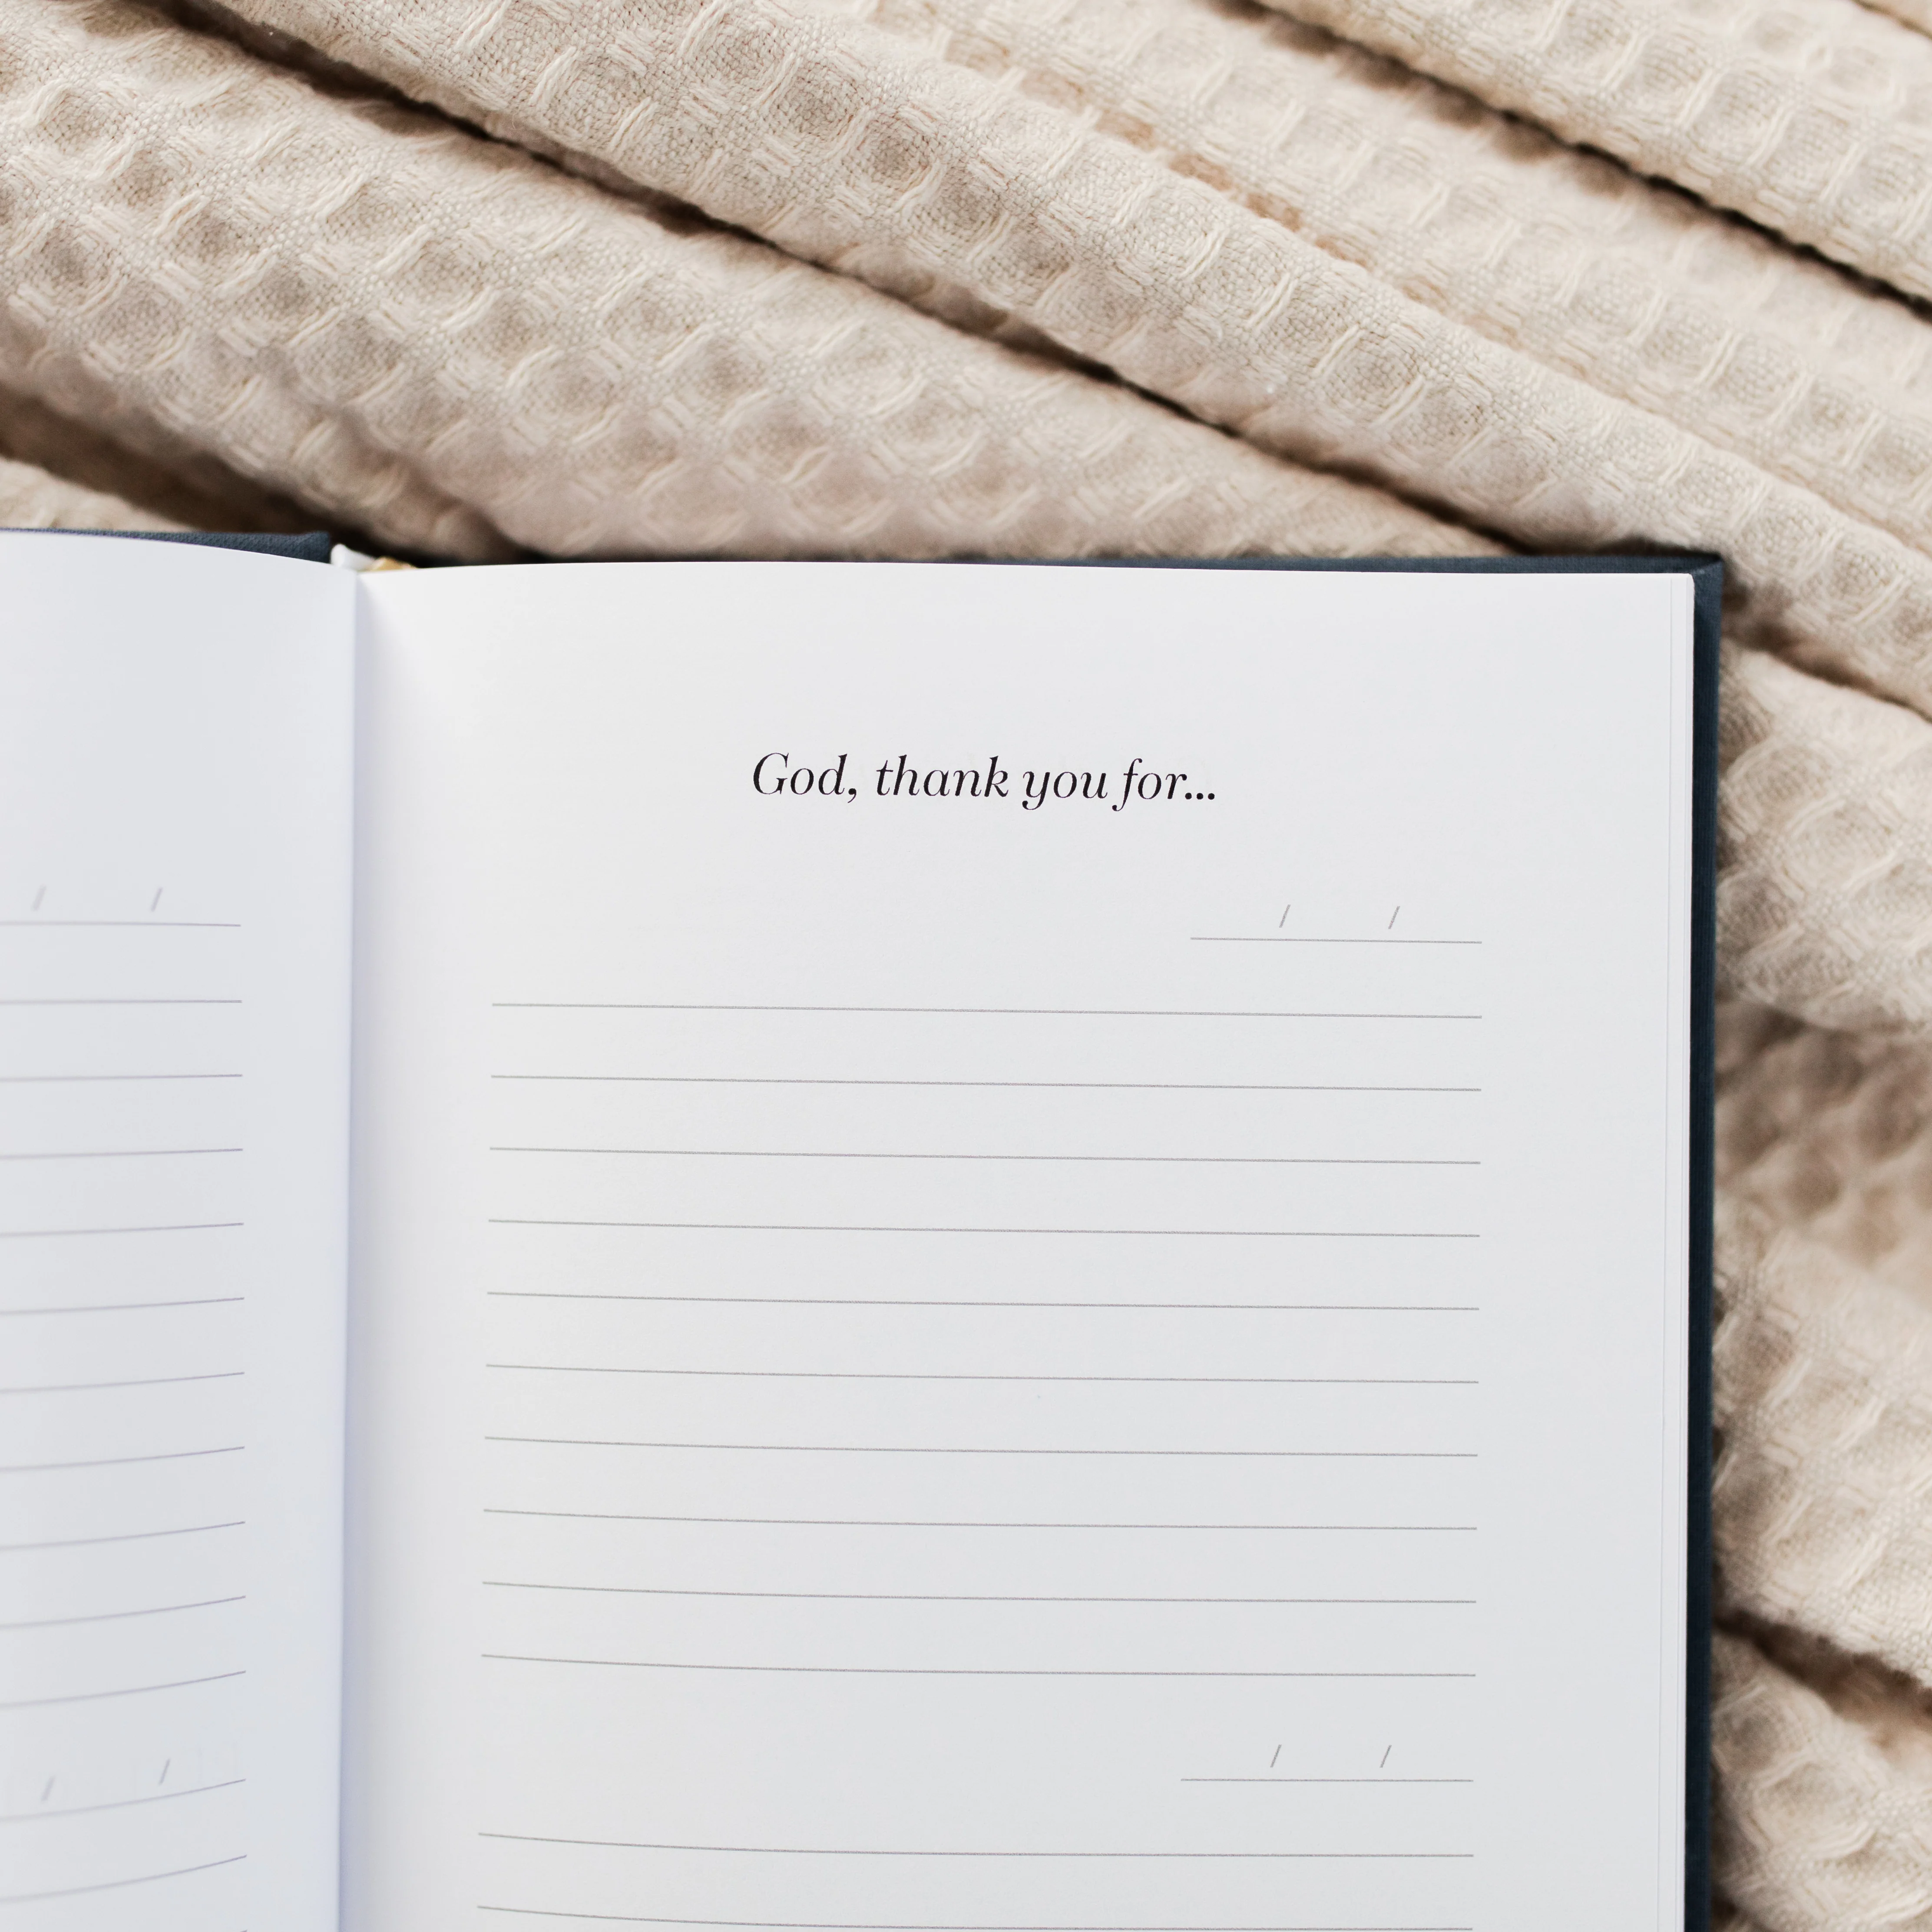 God, thank you for...
/ /
/ /
/ /
/ /